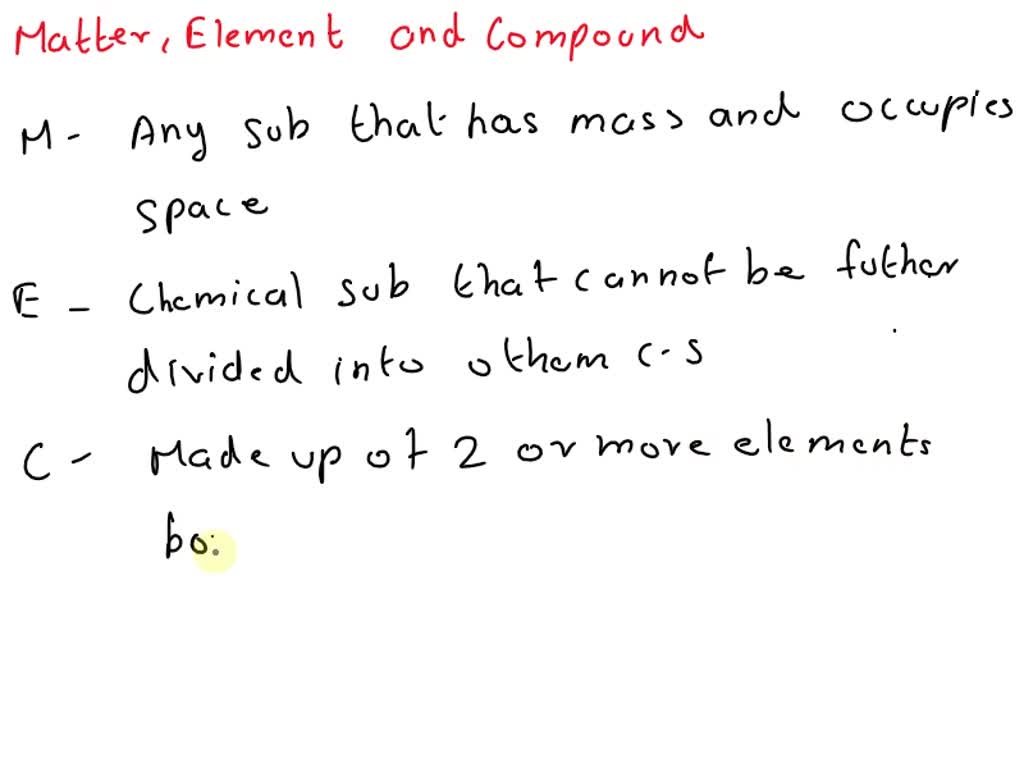 Matter, Element and Compound
M - Any sub that has mass and occupies
space
E - Chemical sub that cannot be futher
divided into othem c-s
C - Made up of 2 or more elements
bo